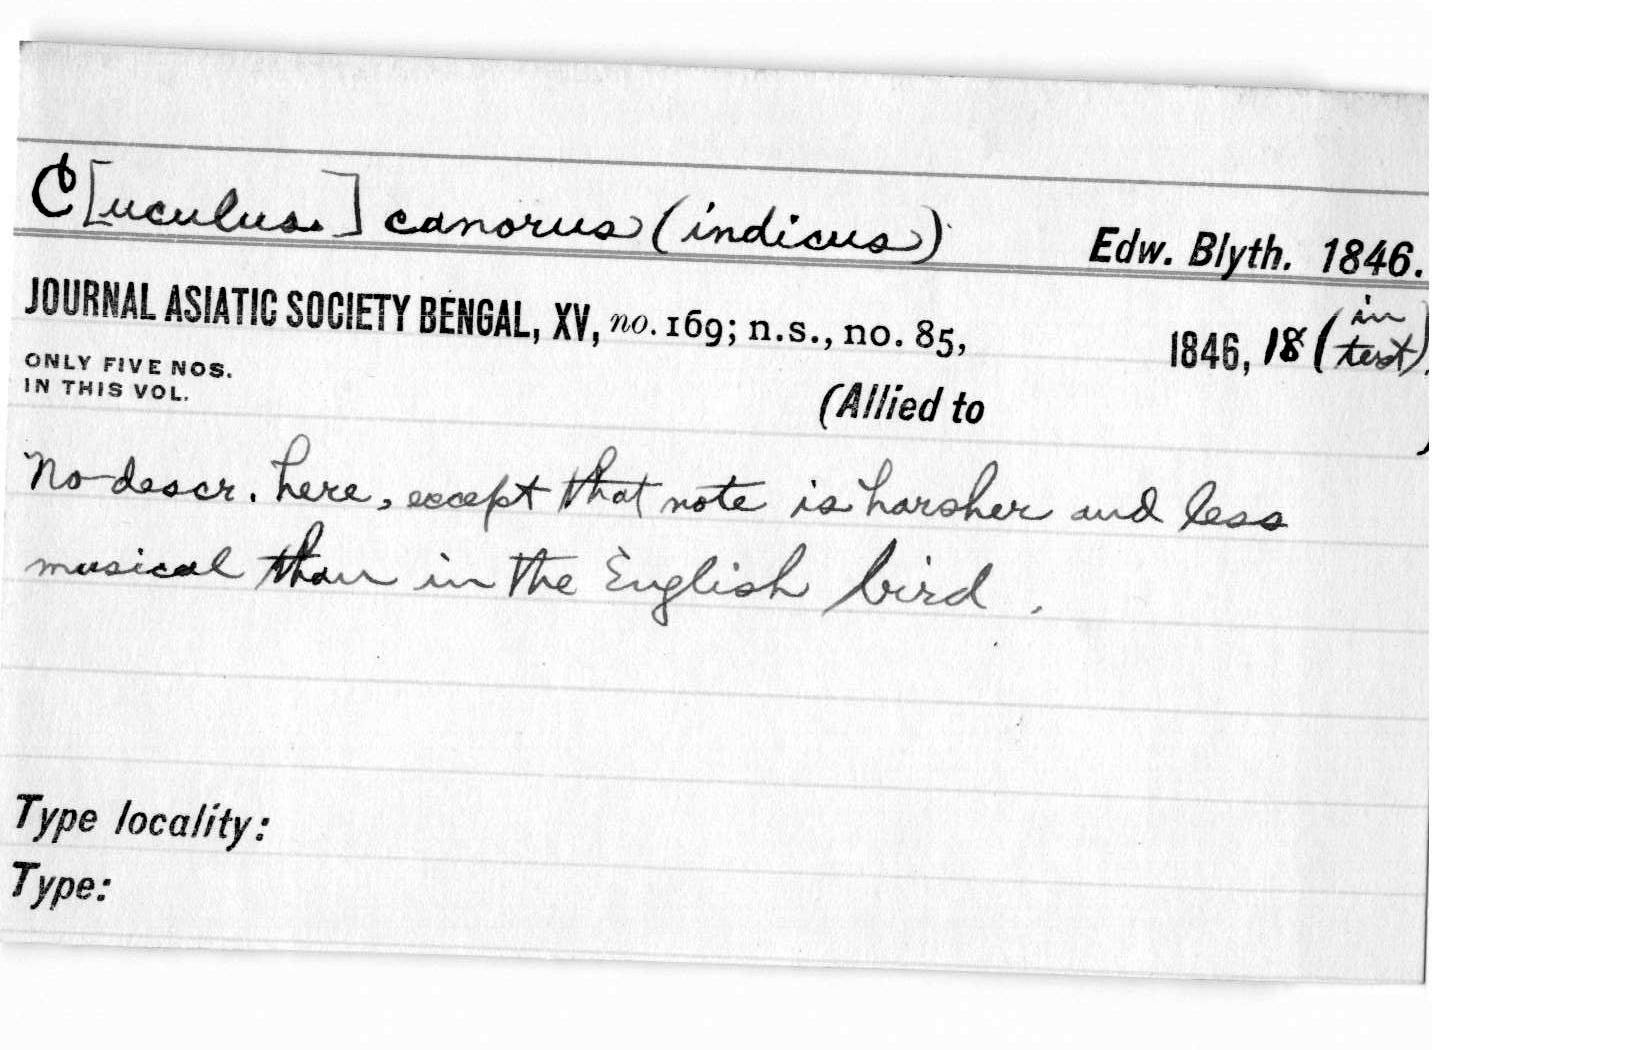 C[uculus.] canorus (indicus) Edw. Blyth. 1846.
JOURNAL ASIATIC SOCIETY BENGAL, XV, no. 169; n.s., no. 85, 1846, 18 (in text).
ONLY FIVE NOS.
IN THIS VOL.
(Allied to )
No descr. here, except that note is harsher and less
musical than in the English bird.
Type locality:
Type: